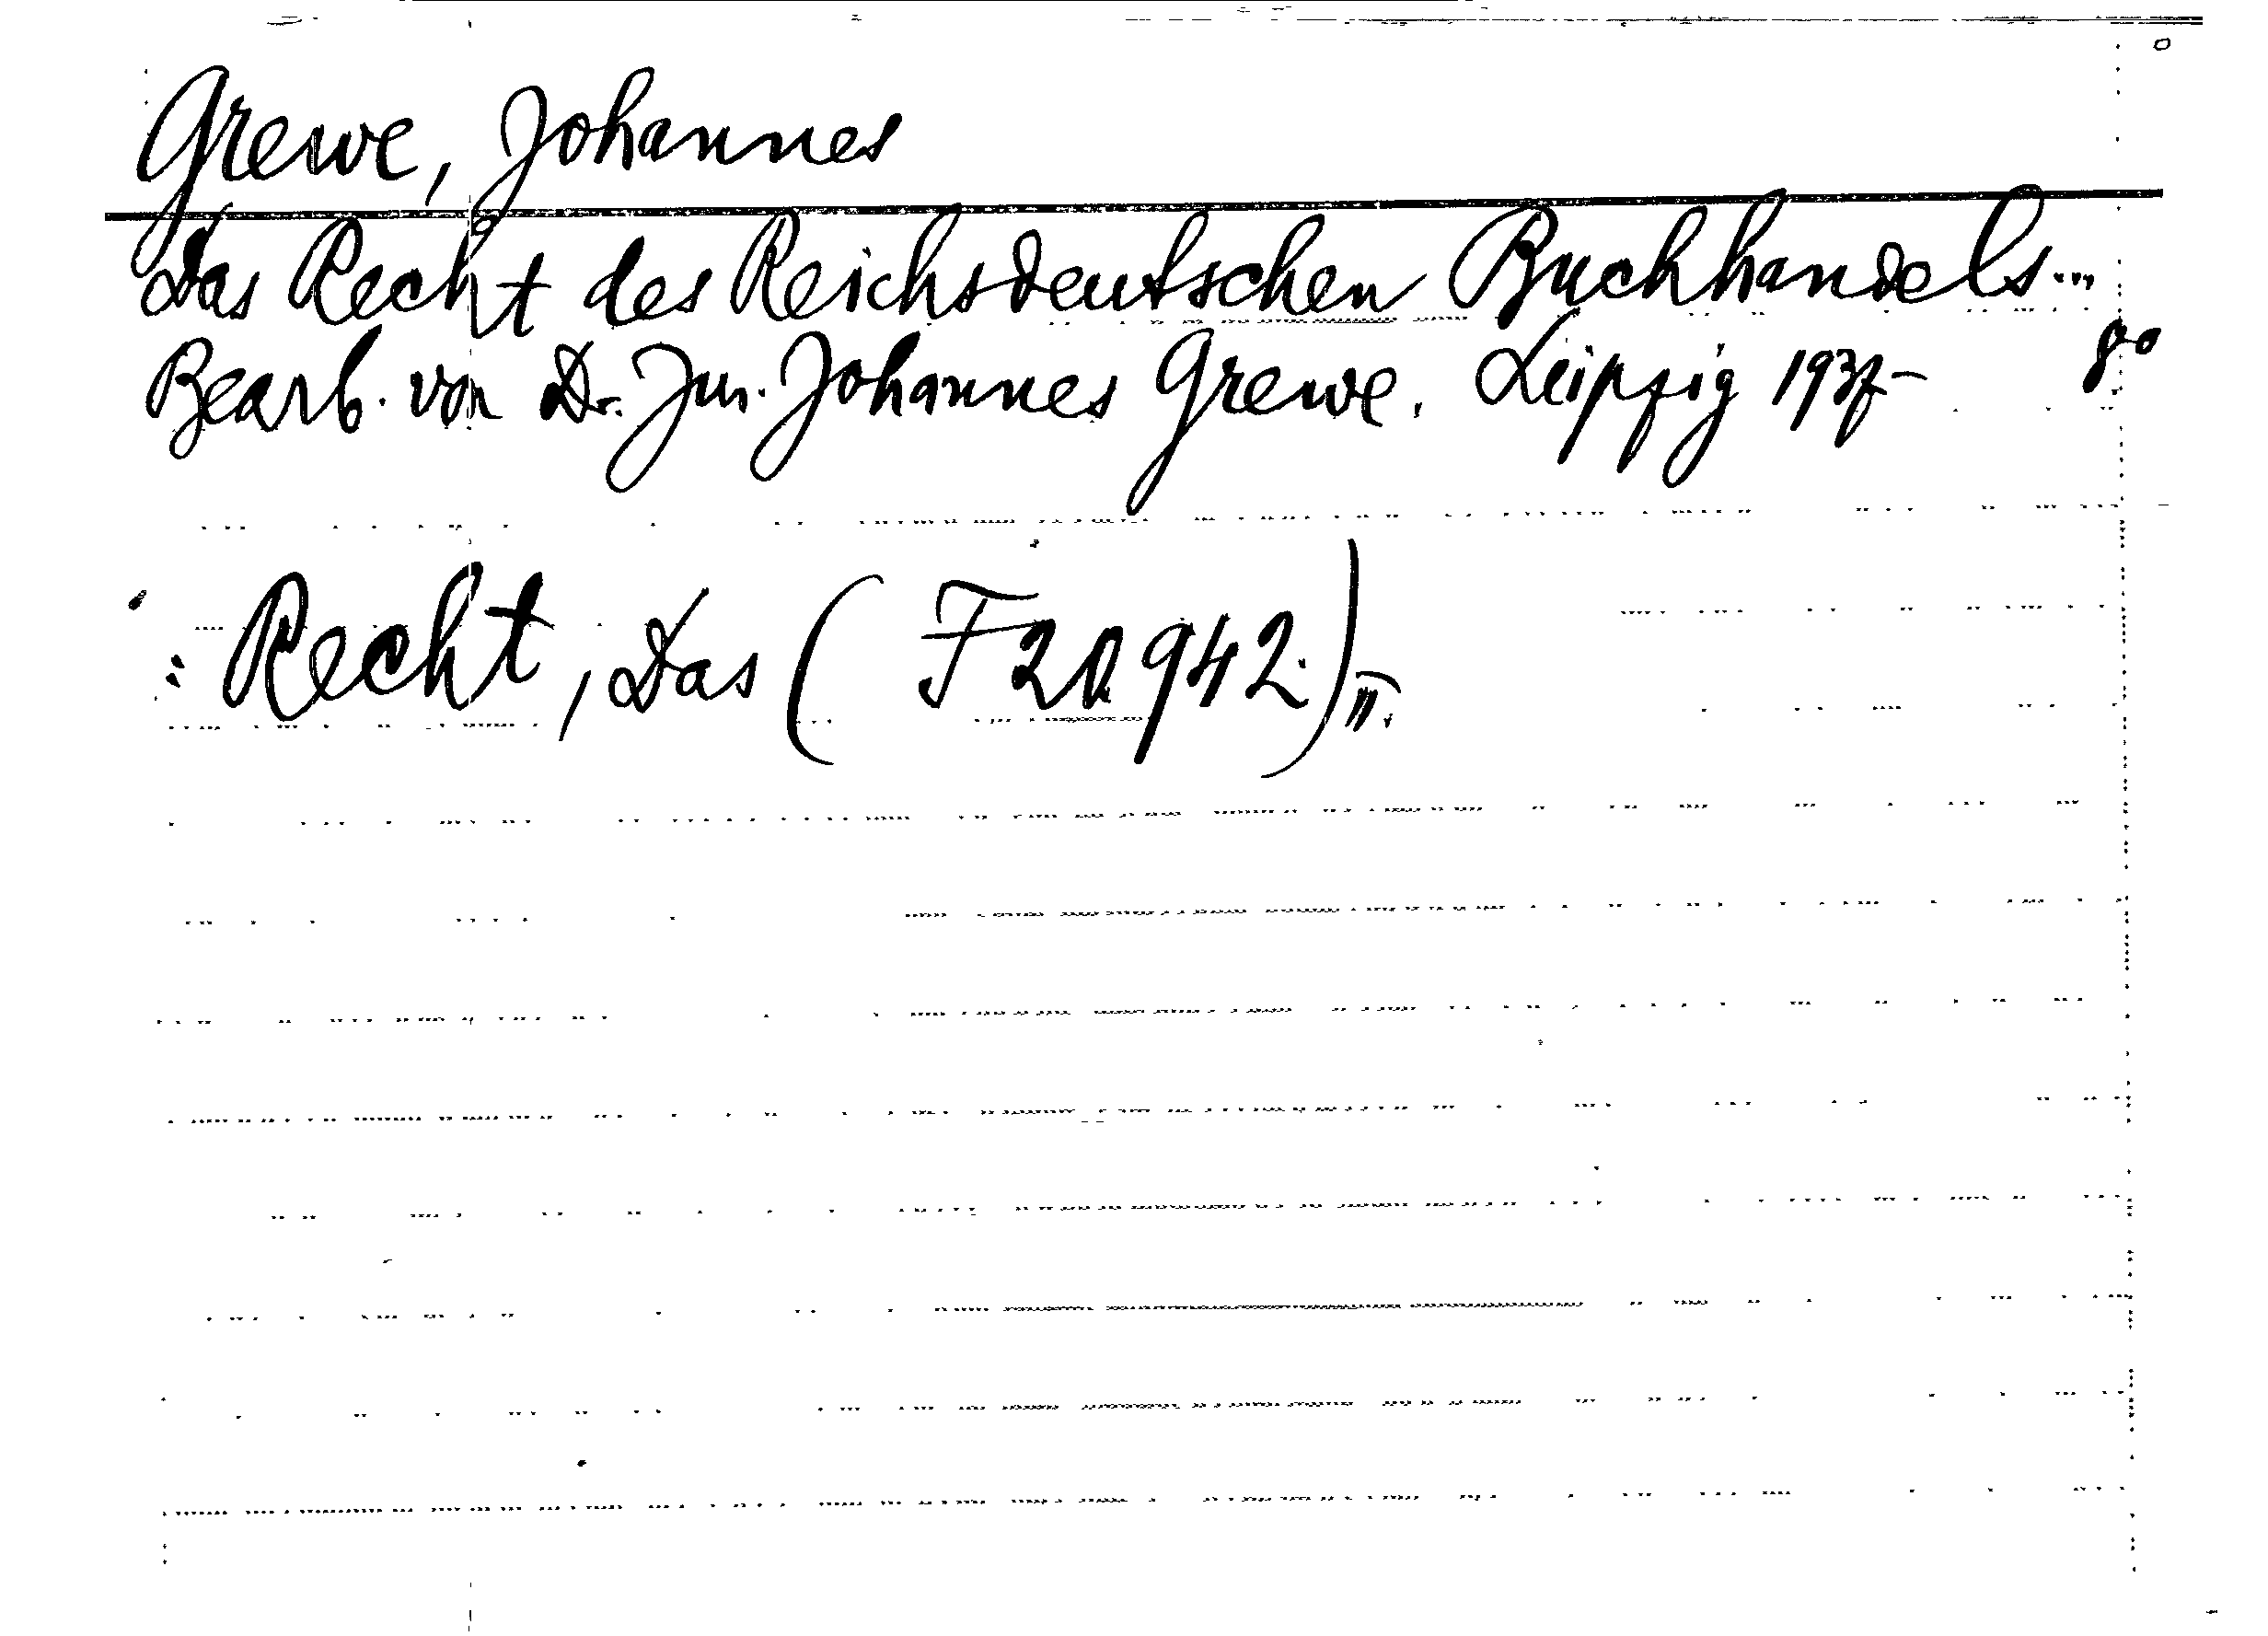 Grewe, Johannes
Das Recht des Reichsdeutschen Buchhandels...
Bearb. von Dr. Jur. Johannes Grewe. Leipzig 1937- 8°
: Recht, Das ( F 20 942.) III.